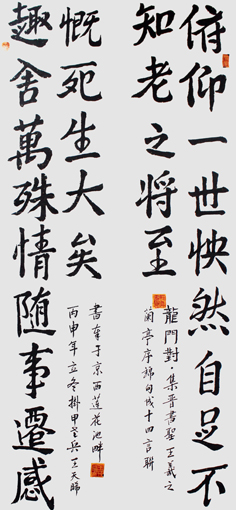 俯仰一世怏然自足不
知老之將至
龍門對·集晉書聖王羲之
蘭亭序句成十四言聯
趣舍萬殊情隨事遷感
慨死生大矣
書於京西蓮花池畔
丙申年立冬掛甲老兵王天